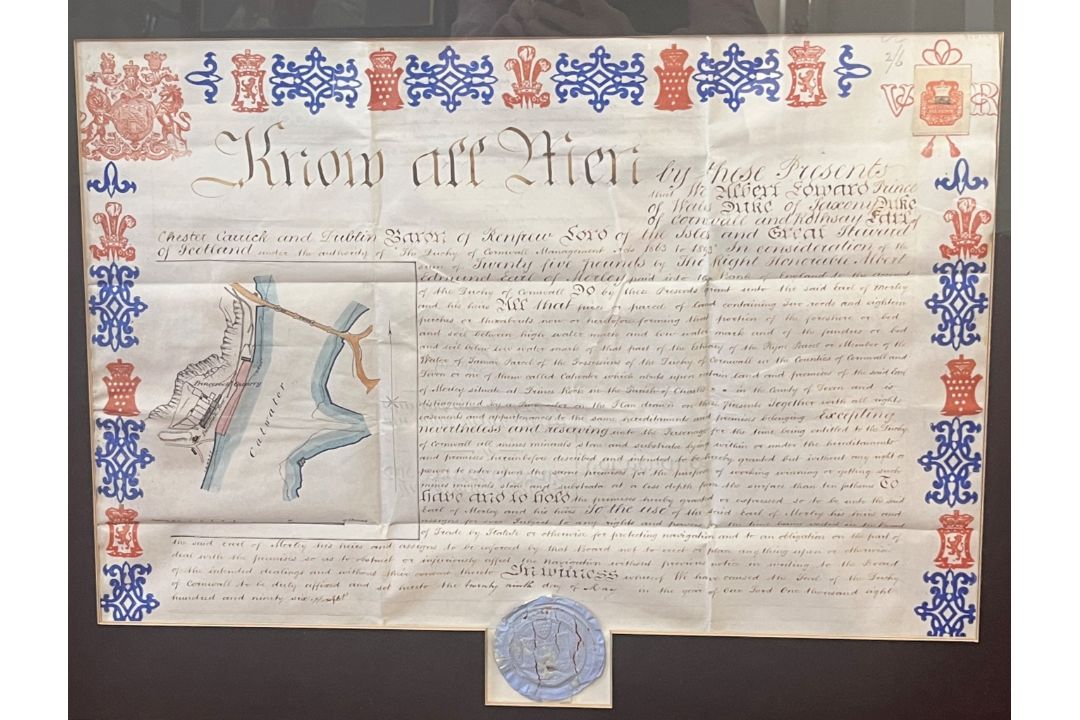 2/6
V R
Know all Men by these Presents
that We Albert Edward Prince
of Wales Duke of Saxony Duke
of Cornwall and Rothsay Earl of
Chester Carrick and Dublin Baron of Renfrew Lord of the Isles and Great Steward
of Scotland under the authority of "The Duchy of Cornwall Management Acts 1863 to 1893" In consideration of the
sum of Twenty five pounds by The Right Honourable Albert
Edmund Earl of Morley paid into the Bank of England to the account
of the Duchy of Cornwall Do by these Presents grant unto the said Earl of Morley
and his heirs All that piece or parcel of land containing two roods and eighteen
perches or thereabouts now or heretofore forming that portion of the foreshore or bed
and soil between high water mark and low water mark and of the fundus or bed
and soil below low water mark of that part of the Estuary of the River or Member of the
Water of Tamar Parcel of the Possessions of the Duchy of Cornwall in the Counties of Cornwall and
Devon or one of them called Catwater which abuts upon certain land and premises of the said Earl
of Morley situate at Prince Rock in the Parish of Charles in the County of Devon and is
distinguished by a color on the Plan drawn on these presents Together with all rights
easements and appurtenances to the same hereditaments and premises belonging Excepting
nevertheless and reserving unto the Personage for the time being entitled to the Duchy
of Cornwall all mines minerals stone and substrata lying within or under the hereditaments
and premises hereinbefore described and intended to be hereby granted but without any right or
power to enter upon the same premises for the purpose of working winning or getting such
mines minerals stone and substrata at a less depth from the surface than ten fathoms To
have and to hold the premises hereby granted or expressed so to be unto the said
Earl of Morley and his heirs To the use of the said Earl of Morley his heirs and
assigns for ever Subject to any rights and powers for the time being vested in the Board
of Trade by Statute or otherwise for protecting navigation and to an obligation on the part of
the said Earl of Morley his heirs and assigns to be enforced by that Board not to erect or place anything upon or otherwise
deal with the premises so as to obstruct or injuriously affect the navigation without previous notice in writing to the Board
of the intended dealings and without their consent thereto In witness whereof We have caused the Seal of the Duchy
of Cornwall to be duly affixed and set hereto the twenty ninth day of May in the year of Our Lord One thousand eight
hundred and ninety six
Princerock Quarry
Catwater